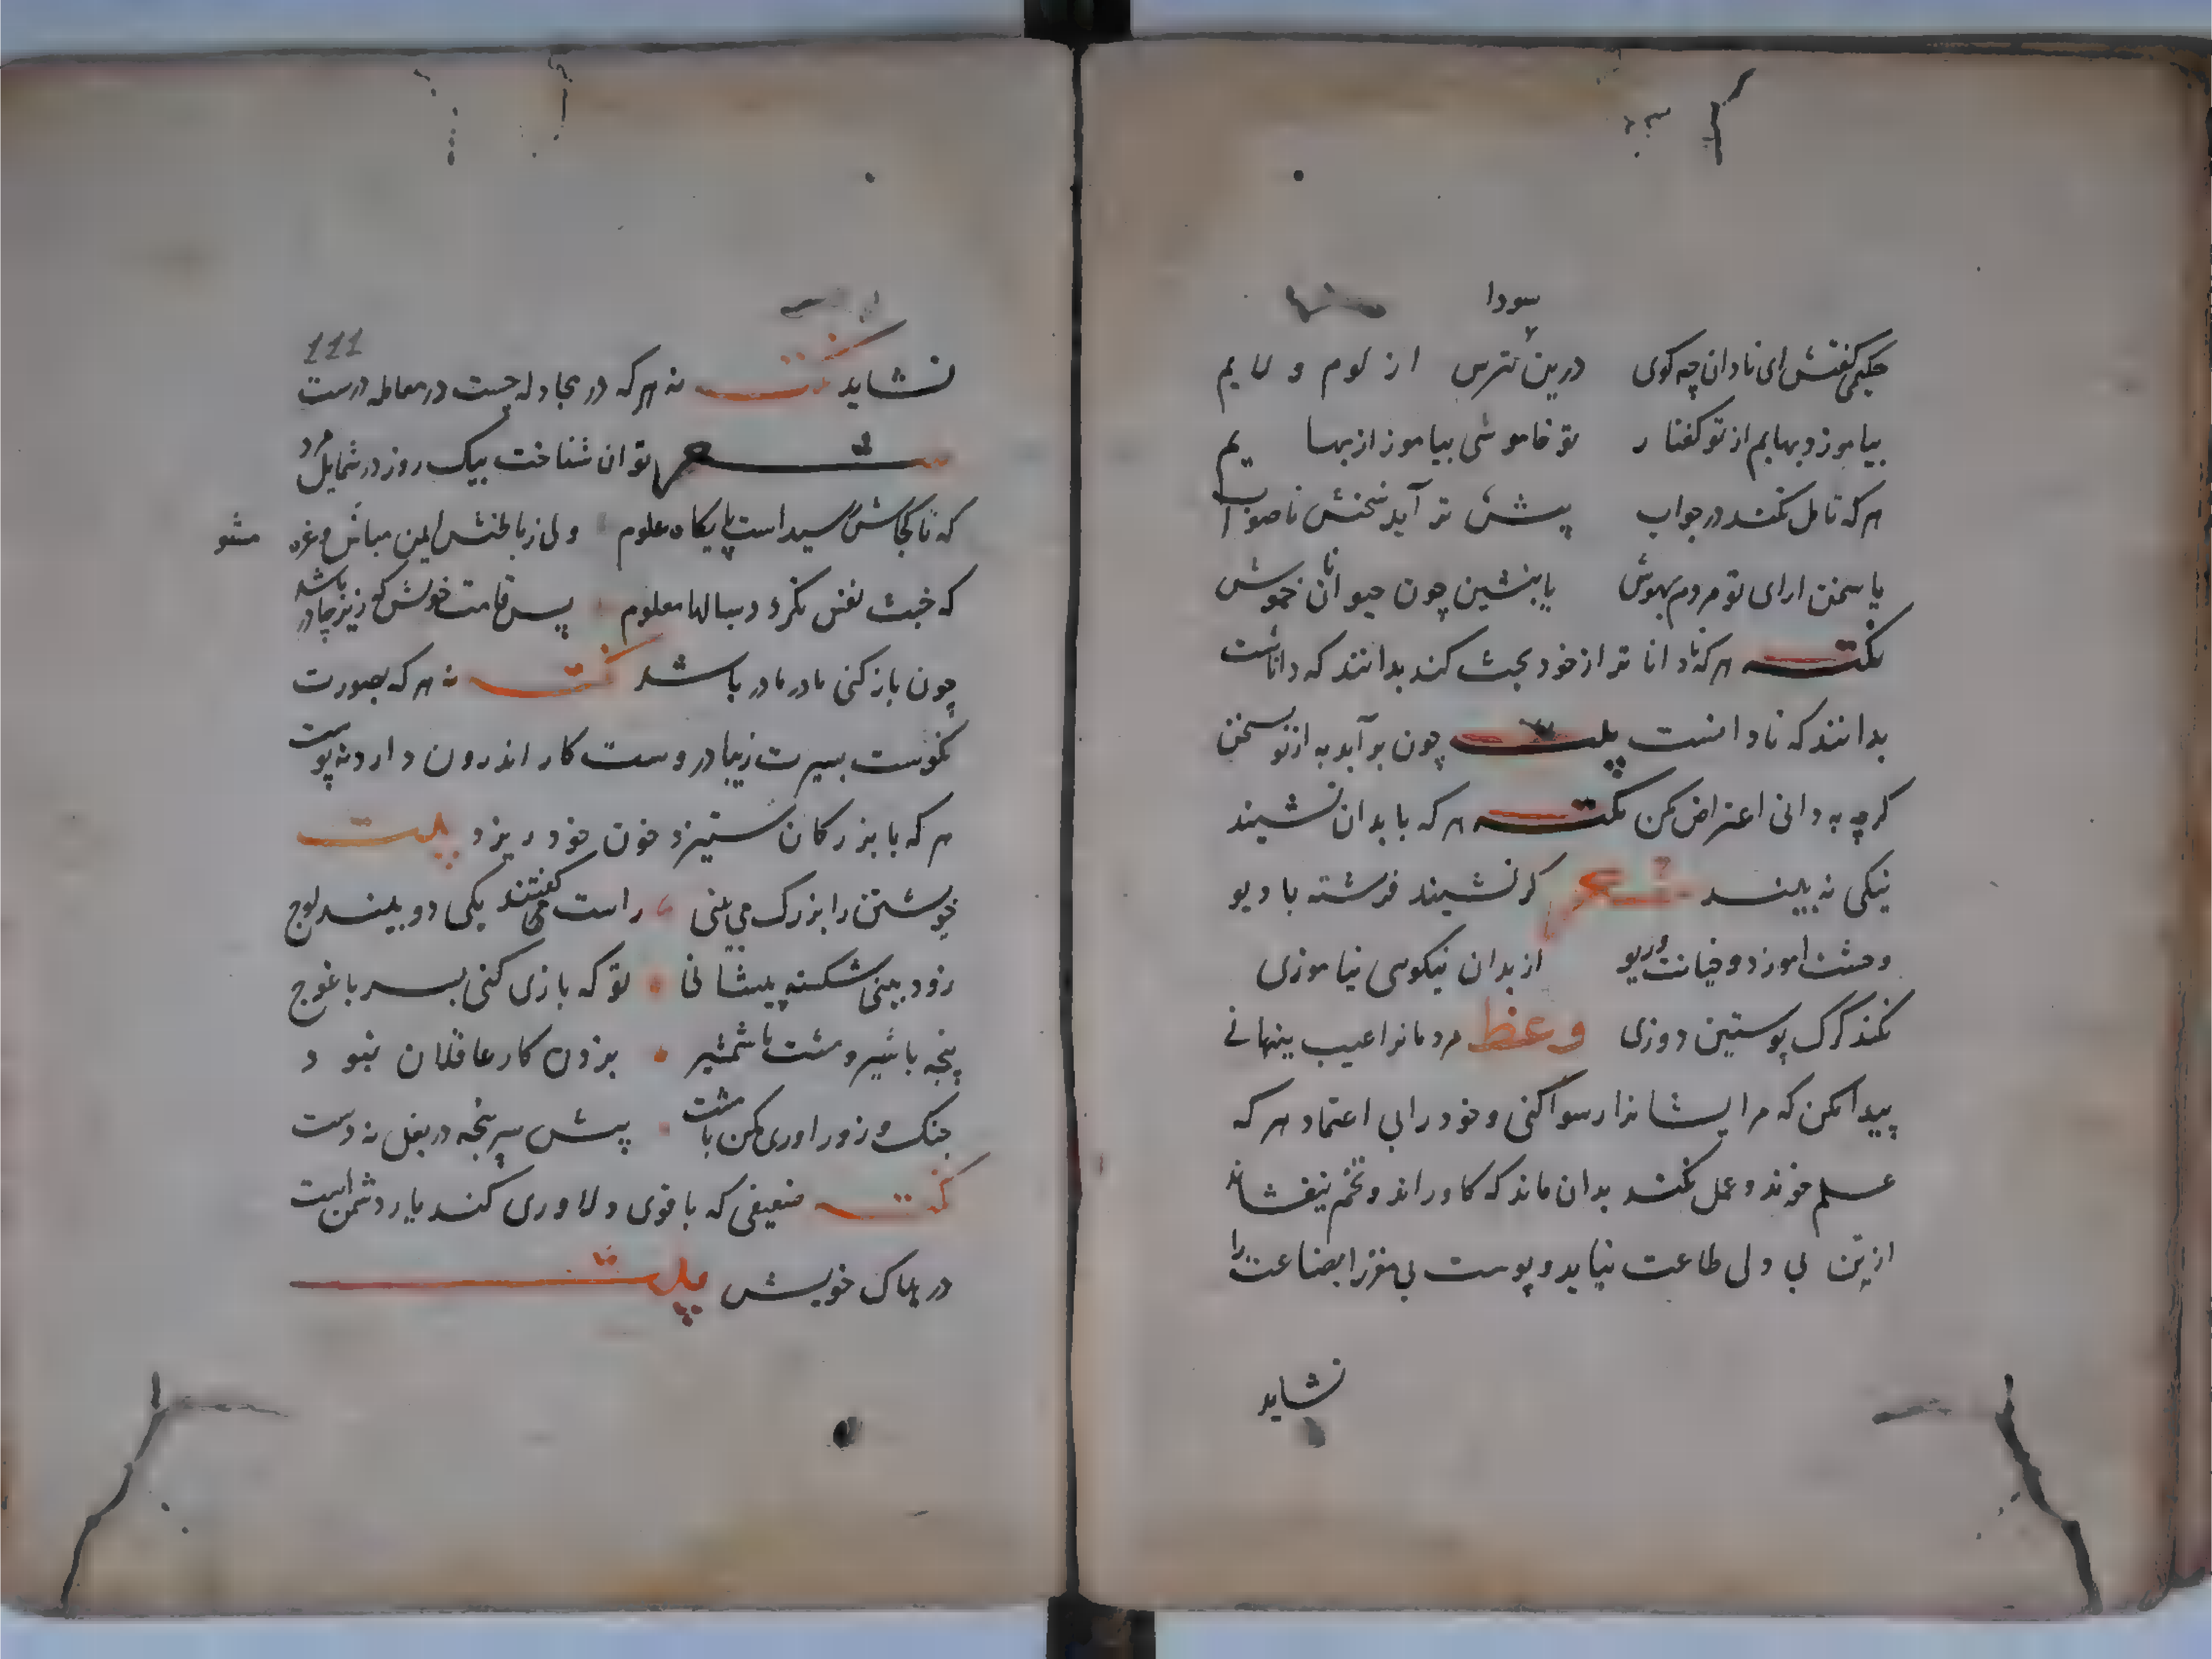 سودا
حکیمی گفتش ای نادان چه کوی درین ترس از لوم و لایم
بیاموزد بهایم از تو کفتار تو خاموشی بیاموز از بهایم
هرکه تامل نکند در جواب پیشتر آید سخنش ناصواب
یا سخن ارای تو مردم بهوش یا بنشین چون حیوانان خموش
نکته هرکه با دانا تر از خود بحث کند بدانند که داناست
بدانند که نادانست بیت چون برآید به از تو سخن
کرچه به دانی اعتراض مکن نکته هرکه با بدان نشیند
نیکی نه بیند شعر کر نشیند فرشته با دیو
وحشت اموزد و خیانت و ریو از بدان نیکوی نیاموزی
نکند کرک پوستین دوزی وعظ مردمانرا عیب پنهانی
پیدا مکن که مر ایشانرا رسوا کنی و خود را بی اعتماد هرکه
علم خوند و عمل نکند بدان ماند که کاو راند و تخم نیفشاند
از تن بی دل طاعت نیاید و پوست بی مغز را بضاعت را
نشاید
111
نشاید نکته نه هرکه در مجادله چست در معامله درست
شعر توان شناخت بیک روز در شمایل مرد
که تا کجاش رسیداست پایکاه علوم ولی ز باطنش ایمن مباش و غره مشو
که خبث نفس نکردد بسالها معلوم پس قامت خوش که زیر چادر باشد
چون باز کنی مادر مادر باشد نکته نه هرکه بصورت
نکوست بسیرت زیبا دروست کار اندرون دارد نه پوست
هرکه با بزرکان ستیزد خون خود ریزد بیت
خویشتن را بزرک می بینی راست می کفتند یکی دو بیند لوج
زود بینی شکسته پیشانی تو که بازی کنی بسر با غوج
پنجه با شیر و مشت با شمشیر بزدن کار عاقلان نبود
جنک و زوراوری مکن با مست پیش سرپنجه در بغل نه دست
نکته ضعیفی که با قوی دلاوری کند یار دشمن است
در هلاک خویش بیت